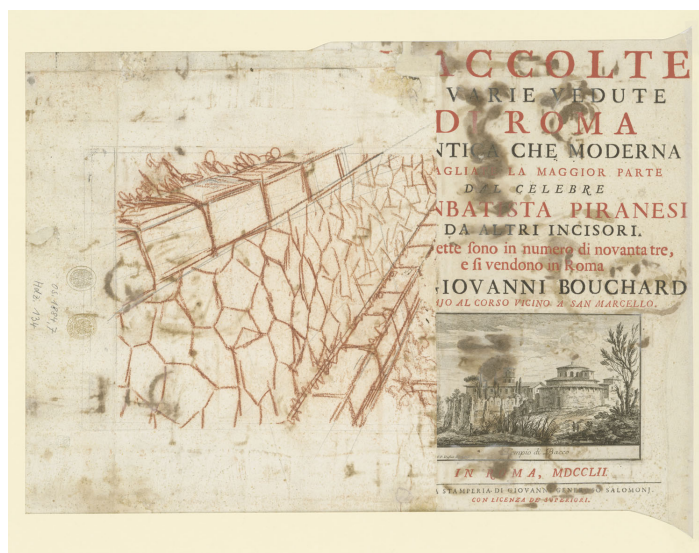 ACCOLTE
VARIE VEDUTE
DI ROMA
NTICA CHE MODERNA
LA MAGGIOR PARTE
DAL CELEBRE
NBATISTA PIRANESI
DA ALTRI INCISORI.
ette sono in numero di novanta tre,
e si vendono in Roma
GIOVANNI BOUCHARD
JO AL CORSO VICINO A SAN MARCELLO.
Tempio di Bacco
IN ROMA, MDCCLII.
STAMPERIA DI GIOVANNI GENEROSO SALOMONJ
CON LICENZA DE SUPERIORI.
Hdz. 134